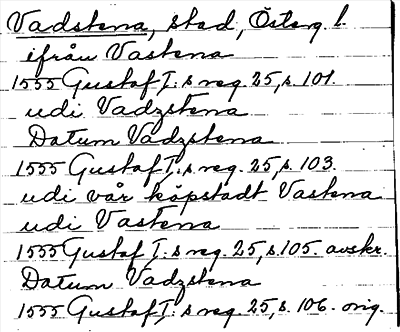 Vadstena, stad, Österg. l.
ifrån Vastena
1555 Gustaf I:s reg. 25, s. 101.
udi Vadzstena
Datum Vadzstena
1555 Gustaf I:s reg. 25, s. 103.
udi vår köpstadt Vastena
udi Vastena
1555 Gustaf I:s reg. 25, s. 105. avskr.
Datum Vadzstena
1555 Gustaf I:s reg. 25, s. 106. orig.